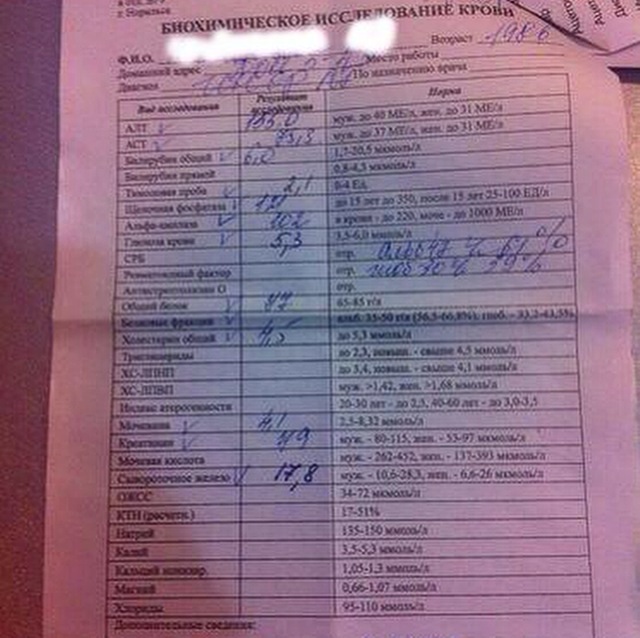 г. Норильск
БИОХИМИЧЕСКОЕ ИССЛЕДОВАНИЕ КРОВИ
Ф.И.О. Возраст 1986
Домашний адрес Место работы
Диагноз По назначению врача
Вид исследования Результат исследования Норма
АЛТ муж. до 40 МЕ/л, жен. до 31 МЕ/л
АСТ муж. до 37 МЕ/л, жен. до 31 МЕ/л
Билирубин общий 6,0 1,7-20,5 мкмоль/л
Билирубин прямой 0,8-4,3 мкмоль/л
Тимоловая проба 2,1 0-4 Ед.
Щелочная фосфатаза до 15 лет до 350, после 15 лет 25-100 ЕД/л
Альфа-амилаза 102 в крови - до 220, моче - до 1000 МЕ/л
Глюкоза крови 5,3 3,5-6,0 ммоль/л
СРБ отр. 61%
Ревматоидный фактор отр. 39%
Антистрептолизин О отр.
Общий белок 77 65-85 г/л
Белковые фракции альб. 35-50 г/л (56,5-66,8%), глоб. - 33,2-43,5%
Холестерин общий 4,5 до 5,3 ммоль/л
Триглицериды до 2,3, повыш. - свыше 4,5 ммоль/л
ХС-ЛПНП до 3,4, повыш. - свыше 4,1 ммоль/л
ХС-ЛПВП муж. >1,42, жен. >1,68 ммоль/л
Индекс атерогенности 20-30 лет - до 2,5, 40-60 лет - до 3,0-3,5
Мочевина 4,1 2,5-8,32 ммоль/л
Креатинин 79 муж. - 80-115, жен. - 53-97 мкмоль/л
Мочевая кислота муж. - 262-452, жен. - 137-393 мкмоль/л
Сывороточное железо 17,8 муж. - 10,6-28,3, жен. - 6,6-26 мкмоль/л
ОЖСС 34-72 мкмоль/л
КТН (расчетн.) 17-51%
Натрий 135-150 ммоль/л
Калий 3,5-5,3 ммоль/л
Кальций ионизир. 1,05-1,3 ммоль/л
Магний 0,66-1,07 ммоль/л
Хлориды 95-110 ммоль/л
Дополнительные сведения: